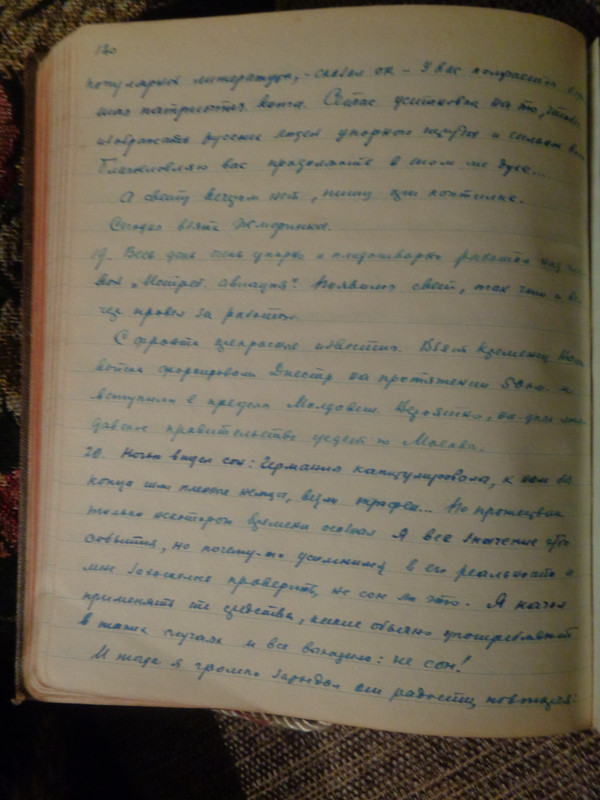 130
популярной литературы, - сказал он - У вас
патриотич. книга. Сейчас установка на то, чтобы
изображать русских людей упорного труда и сильной
Благословляю вас продолжать в том же духе...
А свету вечером нет, пишу при коптилке.
Сегодня взята Жмеринка.
19. Весь день очень упорно и плодотворно работал над
"Истреб. авиация". Появился свет, так что и ве-
чер провел за работой.
С фронта прекрасные известия. Взят Кременец. Наши
войска форсировали Днестр на протяжении 50 км. и
вступили в пределы Молдавии. Вероятно, на днях мол-
давское правительство уедет из Москвы.
20. Ночью видел сон: Германия капитулировала, к нам без
конца шли пленные немцы, везли трофеи... По прошествии
только некоторого времени осознал я все значение этого
события, но почему-то усомнился в его реальности и
мне захотелось проверить, не сон ли это. Я начал
применять те средства, какие обычно употребляют
в таких случаях и все выходило: не сон!
И тогда я громко зарыдал от радости, повторяя: